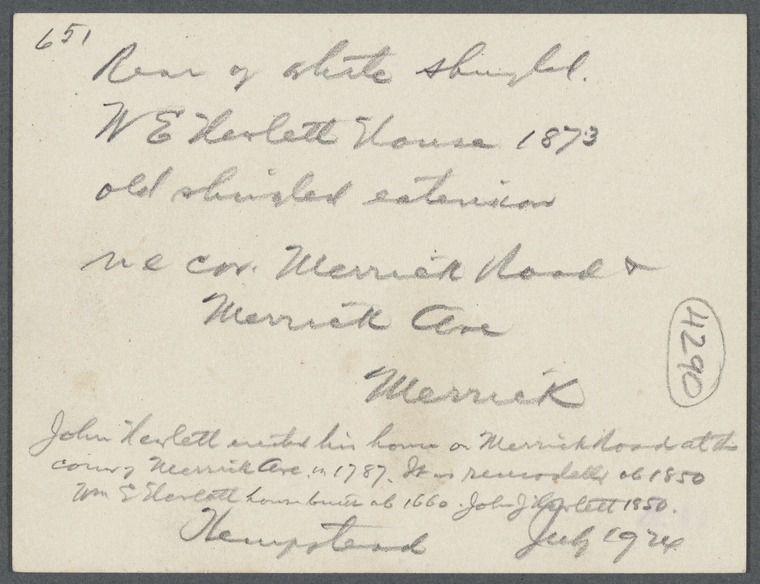 651
Rear of white shingled.
W E Hewlett House 1873
old shingled extension
n e cor. Merrick Road &
Merrick Ave
4290
Merrick
John Hewlett erected his home on Merrick Road at the
corner of Merrick Ave. in 1787. It was remodelled ab 1850
Wm E Hewlett house built ab 1660. John J Hewlett 1850.
Hempstead July 1924